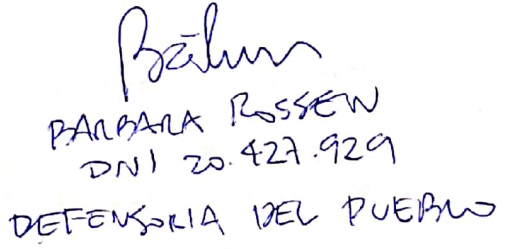 BARBARA ROSSEN
DNI 20.427.929
DEFENSORIA DEL PUEBLO